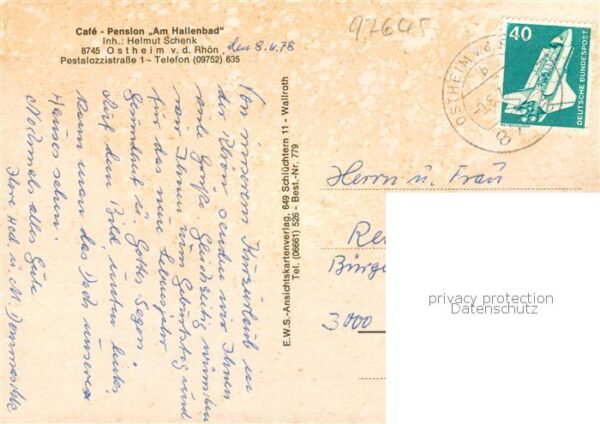 Café - Pension „Am Hallenbad"
Inh.: Helmut Schenk
8745 Ostheim v. d. Rhön
Pestalozzistraße 1 - Telefon (09752) 635
den 8.6.78
Von unserem Kurzurlaub in
der Rhön senden wir Ihnen
viele Grüße. Gleichzeitig wünschen
wir Ihnen zum Geburtstag und
für das neue Lebensjahr
Gesundheit u. Gottes Segen.
Auf dem Bild unten links,
kann man das Dach unseres
Hauses sehen.
Nochmals alles Gute
Ihre Hed. u. M.
E.W.S.-Ansichtskartenverlag, 649 Schlüchtern 11 - Wallroth
Tel. (06661) 526 - Best.-Nr. 779
97645
OSTHEIM v.d.
b
8
40
DEUTSCHE BUNDESPOST
Herrn u. Frau
Re
Bürge
3000
privacy protection
Datenschutz